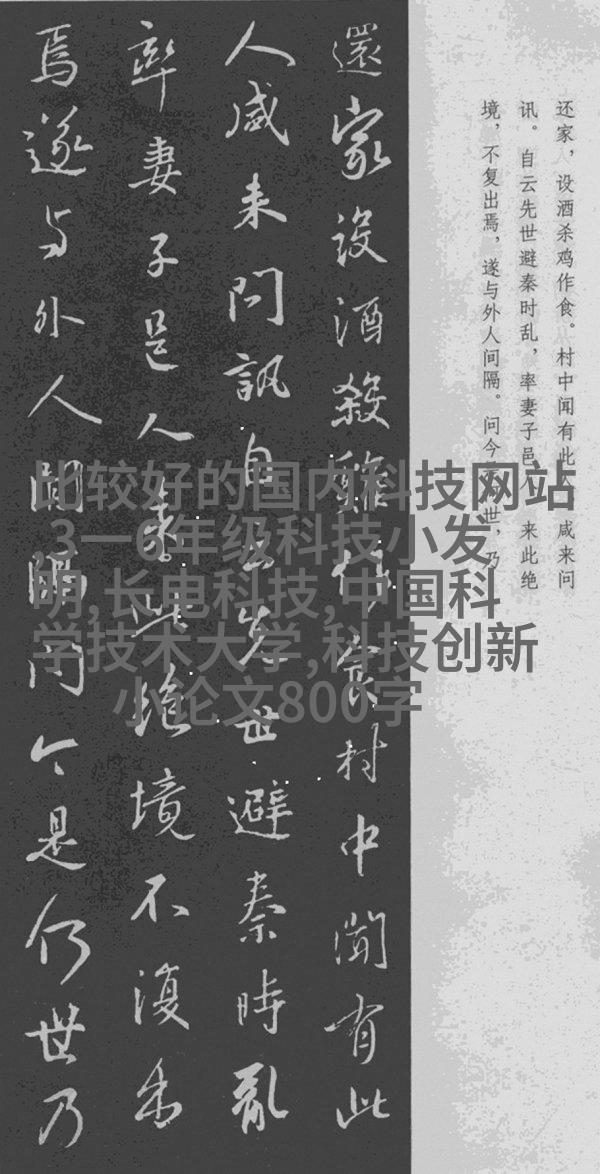 还家，设酒杀鸡作食。村中闻有此人，咸来问
讯。自云先世避秦时乱，率妻子邑人，来此绝
境，不复出焉，遂与外人间隔。问今是何世，乃
還家設酒殺雞作食村中聞有此
人咸来問訊自云先世避秦時亂
率妻子邑人来此绝境不復出
焉遂与外人間隔問今是何世乃
比较好的国内科技网站
,3一6年级科技小发
明,长电科技,中国科
学技术大学,科技创新
小论文800字